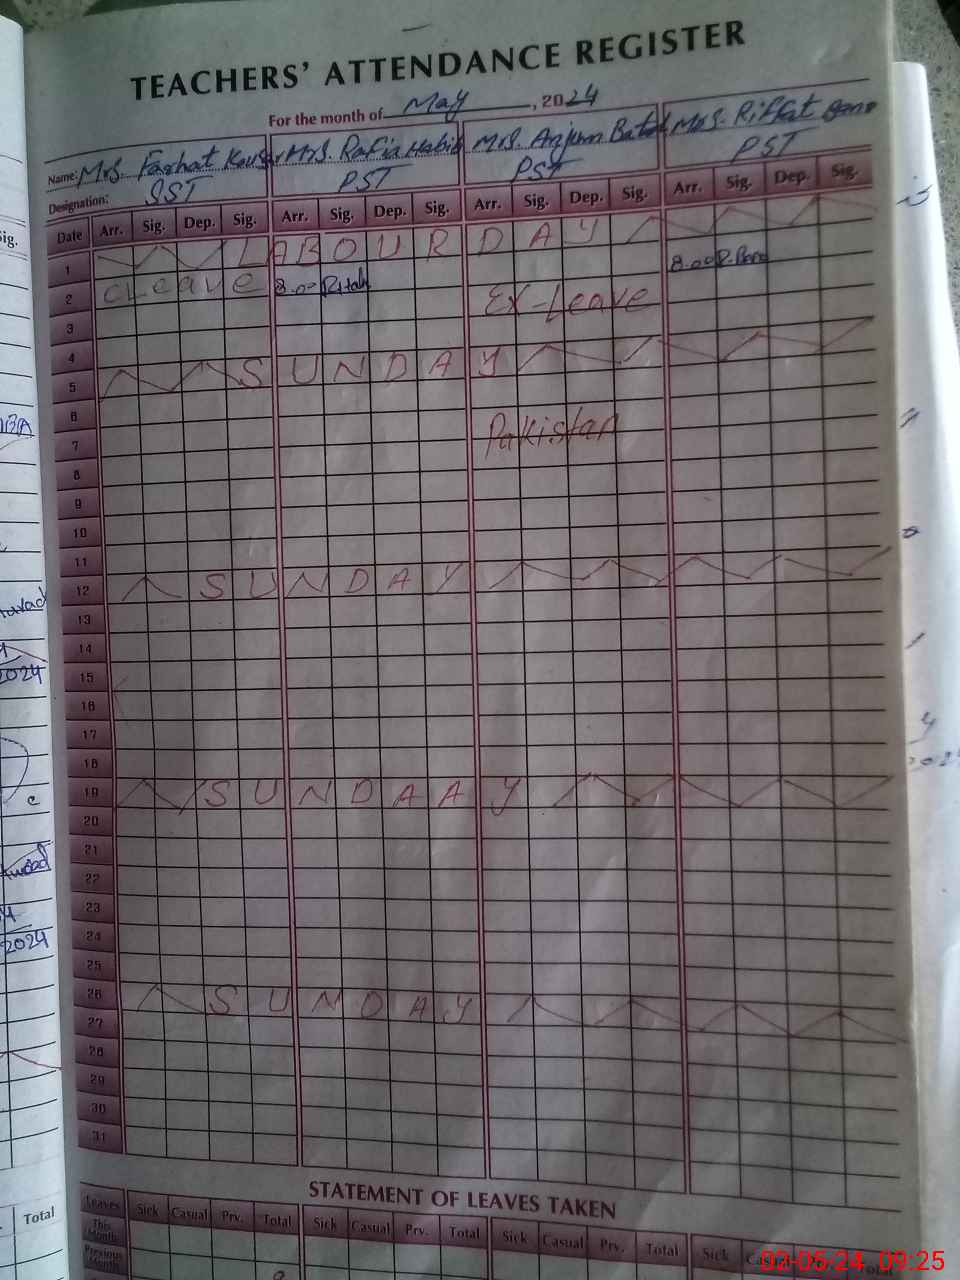 TEACHERS' ATTENDANCE REGISTER
For the month of May, 2024
Name: Mrs. Farhat Kousar Mrs. Rafia Habib Mrs. Anjum Batool Mrs. Riffat Bano
Designation: SST PST PST PST
Date Arr. Sig. Dep. Sig. Arr. Sig. Dep. Sig. Arr. Sig. Dep. Sig. Arr. Sig. Dep. Sig.
1 LABOUR DAY
2 cLeave 8.00 Ex-Leave 8.00 R.Bano
3
4
5 SUNDAY
6
7 Pakistan
8
9
10
11
12 SUNDAY
13
14
15
16
17
18
19 SUNDAAY
20
21
22
23
24
25
26 SUNDAY
27
28
29
30
31
STATEMENT OF LEAVES TAKEN
Leaves Sick Casual Prv. Total Sick Casual Prv. Total Sick Casual Prv. Total Sick Total
This Month
Previous Month
Sig.
2024
2024
Total
02-05-24 09:25